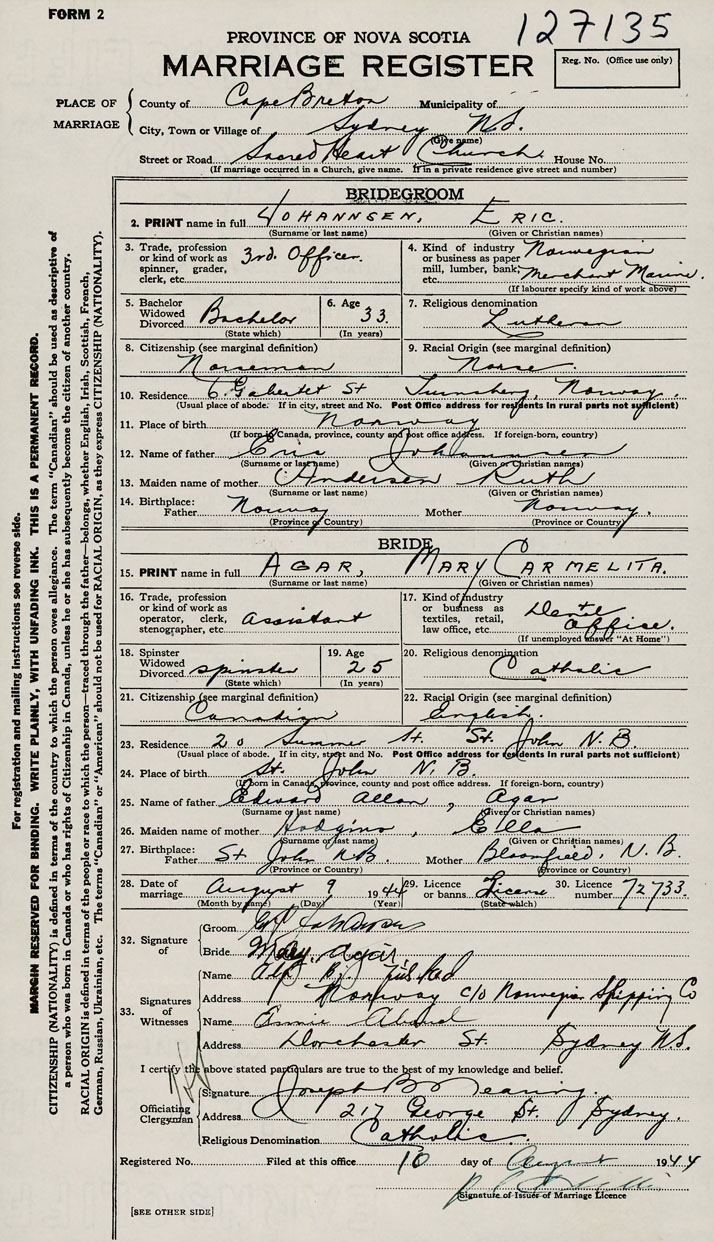 FORM 2
127135
PROVINCE OF NOVA SCOTIA
MARRIAGE REGISTER
Reg. No. (Office use only)
PLACE OF MARRIAGE
County of Cape Breton Municipality of
City, Town or Village of Sydney N.S.
(Give name)
Street or Road Sacred Heart Church House No.
(If marriage occurred in a Church, give name. If in a private residence give street and number)
BRIDEGROOM
2. PRINT name in full JOHANNSEN, ERIC.
(Surname or last name) (Given or Christian names)
3. Trade, profession or kind of work as spinner, grader, clerk, etc. 3rd. Officer.
4. Kind of industry or business as paper mill, lumber, bank, etc. Norwegian Merchant Marine.
(If labourer specify kind of work above)
5. Bachelor Widowed Divorced Bachelor
(State which)
6. Age 33.
(In years)
7. Religious denomination Lutheran
8. Citizenship (see marginal definition) Norseman
9. Racial Origin (see marginal definition) Norse.
10. Residence 6 St Norway.
(Usual place of abode. If in city, street and No. Post Office address for residents in rural parts not sufficient)
11. Place of birth Norway
(If born in Canada, province, county and post office address. If foreign-born, country)
12. Name of father Johannsen
(Surname or last name) (Given or Christian names)
13. Maiden name of mother Andersen Ruth
(Surname or last name) (Given or Christian names)
14. Birthplace: Father Norway Mother Norway.
(Province or Country) (Province or Country)
BRIDE
15. PRINT name in full AGAR, MARY CARMELITA.
(Surname or last name) (Given or Christian names)
16. Trade, profession or kind of work as operator, clerk, stenographer, etc. assistant
17. Kind of industry or business as textiles, retail, law office, etc. office.
(If unemployed answer "At Home")
18. Spinster Widowed Divorced spinster
(State which)
19. Age 25
(In years)
20. Religious denomination Catholic
21. Citizenship (see marginal definition) Canadian
22. Racial Origin (see marginal definition) English.
23. Residence 20 St. St. John N.B.
(Usual place of abode. If in city, street and No. Post Office address for residents in rural parts not sufficient)
24. Place of birth St. John N.B.
(If born in Canada, province, county and post office address. If foreign-born, country)
25. Name of father Edward Allan, Agar
(Surname or last name) (Given or Christian names)
26. Maiden name of mother Hodgins, Ella
(Surname or last name) (Given or Christian names)
27. Birthplace: Father St John N.B. Mother Bloomfield, N.B.
(Province or Country) (Province or Country)
28. Date of marriage August 9 1944
(Month by name) (Day) (Year)
29. Licence or banns License
(State which)
30. Licence number 72733.
32. Signature of
Groom
Bride Mary Agar.
33. Signatures of Witnesses
Name
Address Norway c/o Norwegian Shipping Co
Name
Address Dorchester St. Sydney N.S.
I certify the above stated particulars are to the best of my knowledge and belief.
Officiating Clergyman
Signature Joseph B
Address 217 George St. Sydney.
Religious Denomination Catholic.
Registered No. Filed at this office 10 day of August 1944
Signature of Issuer of Marriage Licence
[SEE OTHER SIDE]
For registration and mailing instructions see reverse side.
MARGIN RESERVED FOR BINDING. WRITE PLAINLY, WITH UNFADING INK. THIS IS A PERMANENT RECORD.
CITIZENSHIP (NATIONALITY) is defined in terms of the country to which the person owes allegiance. The term "Canadian" should be used as descriptive of
a person who was born in Canada or who has rights of Citizenship in Canada, unless he or she has subsequently become the citizen of another country.
RACIAL ORIGIN is defined in terms of the people or race to which the person—traced through the father—belongs, whether English, Irish, Scottish, French,
German, Russian, Ukrainian, etc. The terms "Canadian" or "American" should not be used for RACIAL ORIGIN, as they express CITIZENSHIP (NATIONALITY).